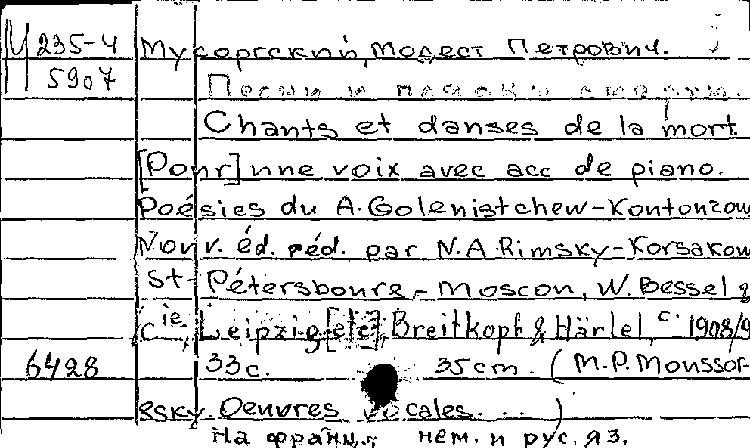 М 235-4
5907
Мусоргский, Модест Петрович.
Песни и пляски смерти.
Chants et danses de la mort
[Pour] une voix avec acc de piano.
Poésies du A. Golenistchew-Koutouzow
Nouv. éd. réd. par N.A Rimsky-Korsakow
St-Pétersbourg-Moscou, W. Bessel &
Cie, Leipzig [etc], Breitkopf & Härtel, c. 1908/9
6428
33c. 35cm. (M.P. Moussor-
gsky. Oeuvres vocales...)
На франц., нем. и рус. яз.